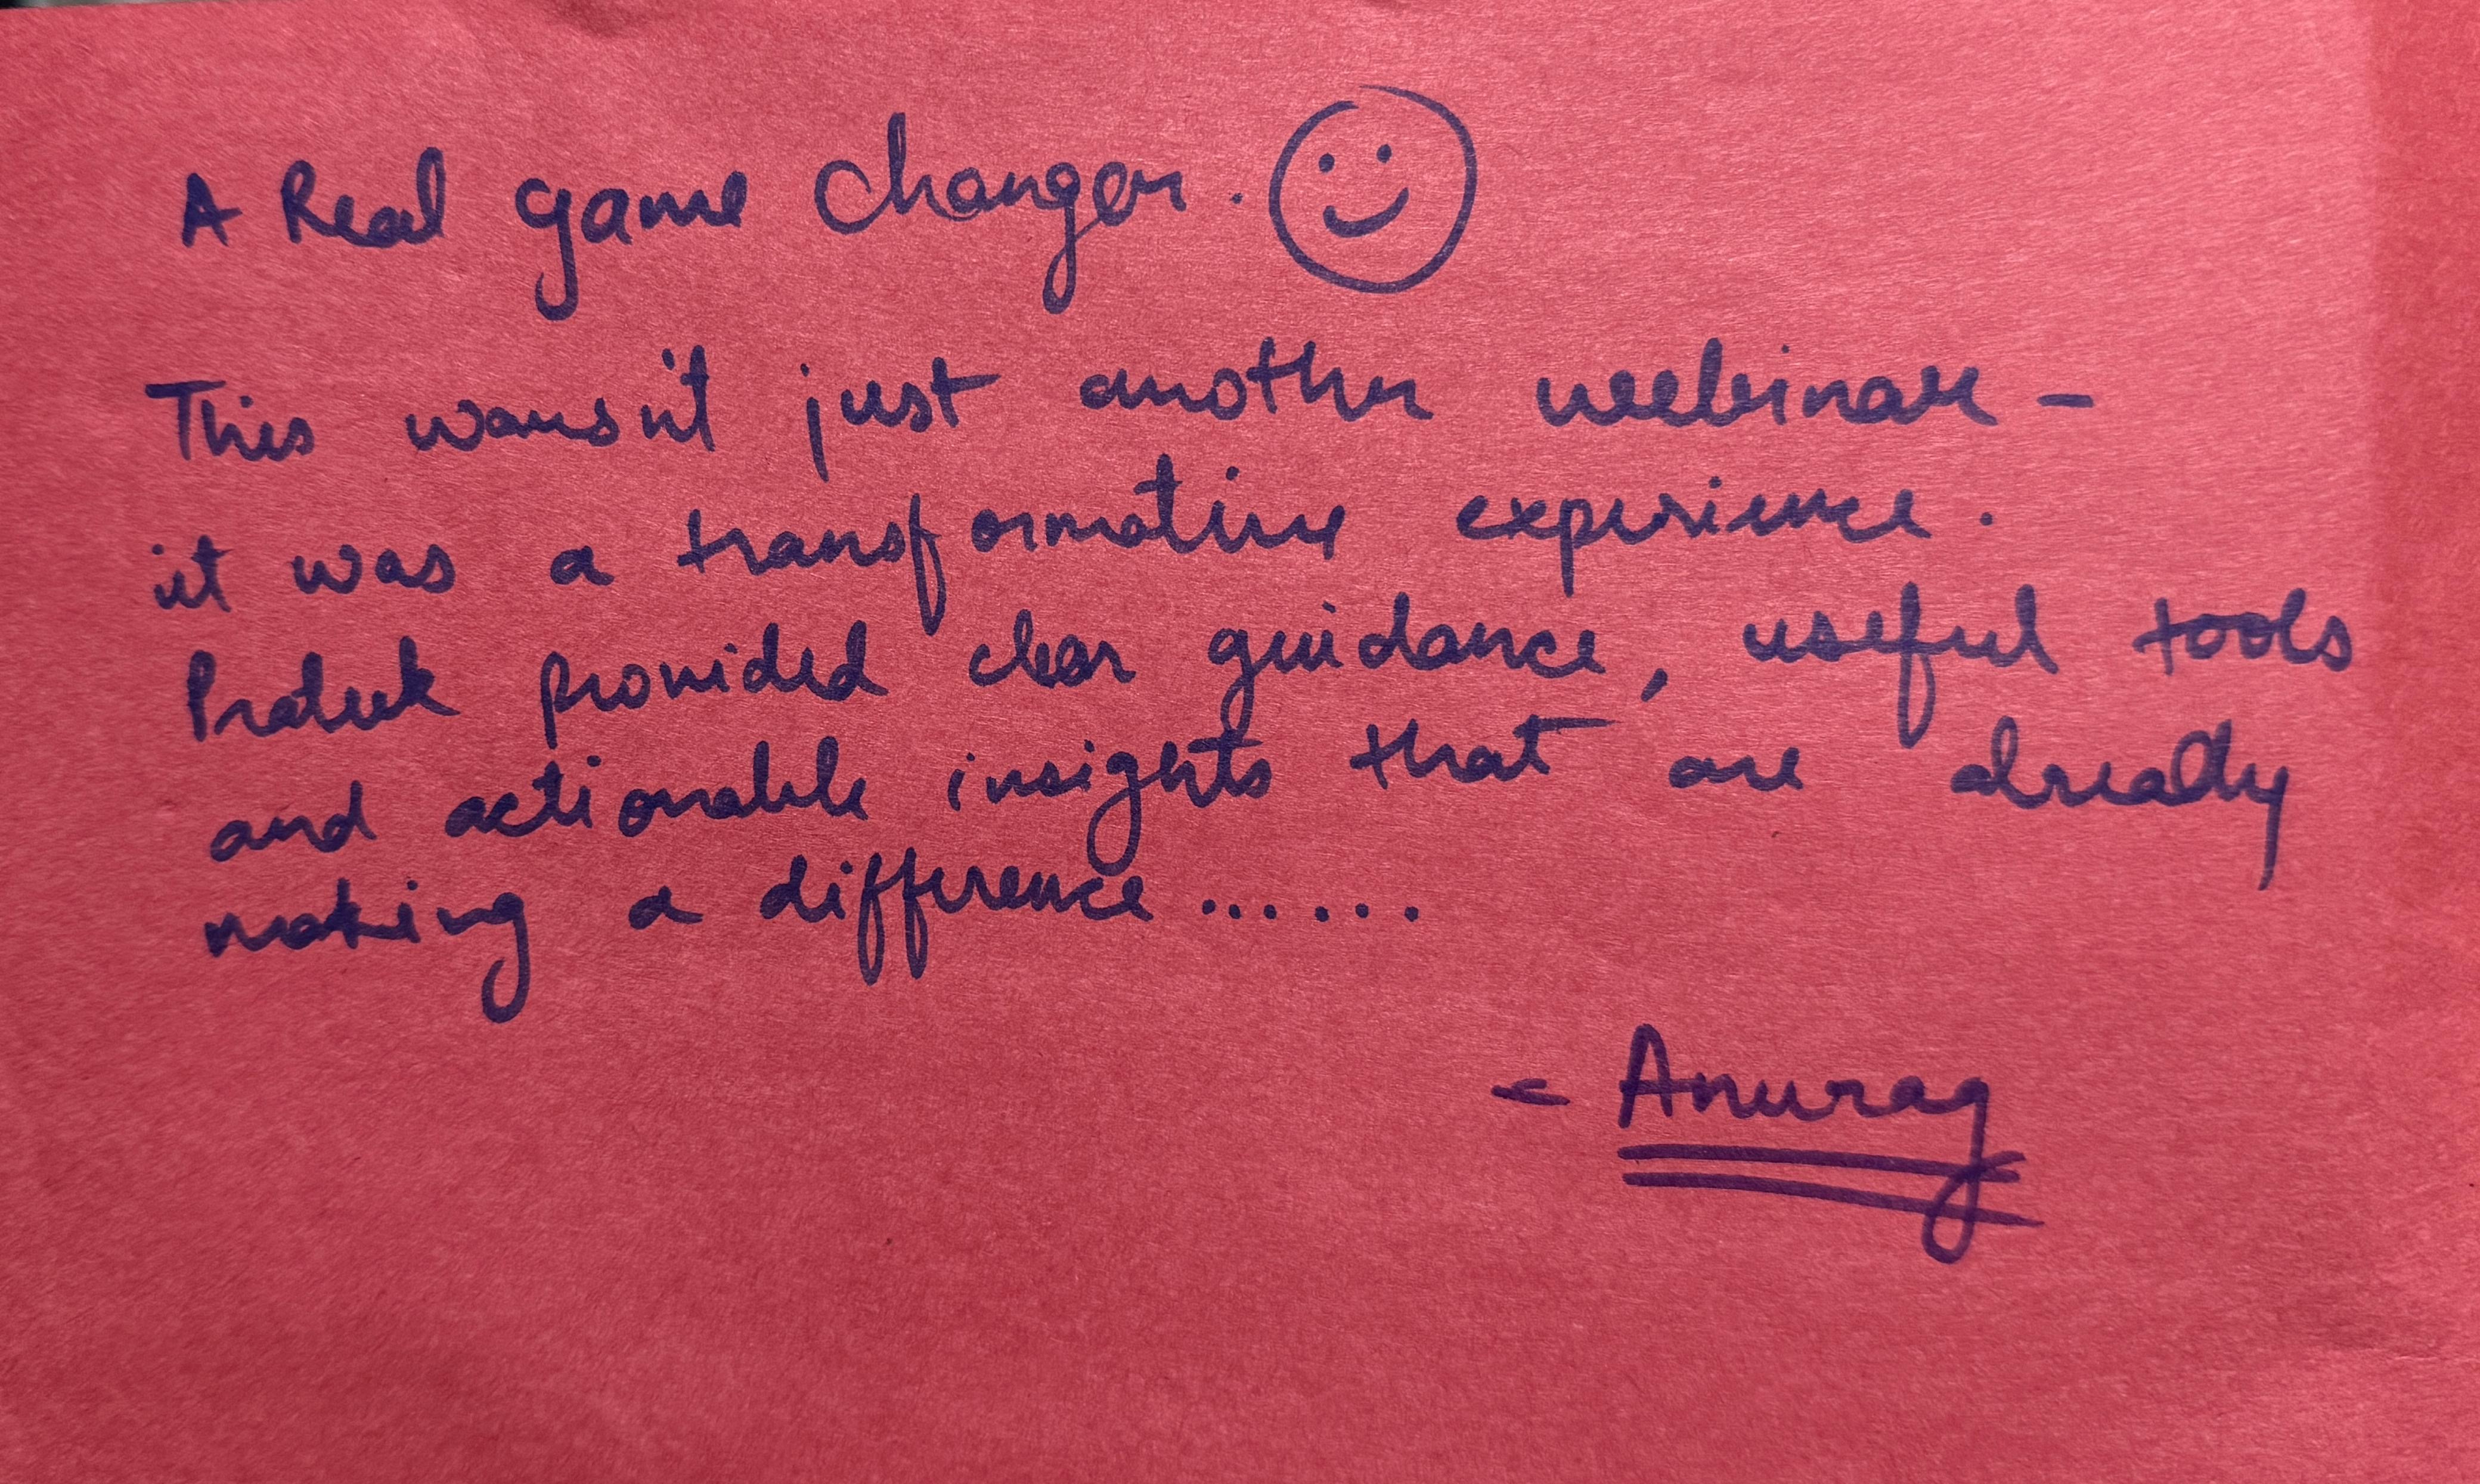 A Real game changer.
This wasn't just another webinar -
it was a transformative experience.
Prateek provided clear guidance, useful tools
and actionable insights that are already
making a difference.......
- Anurag